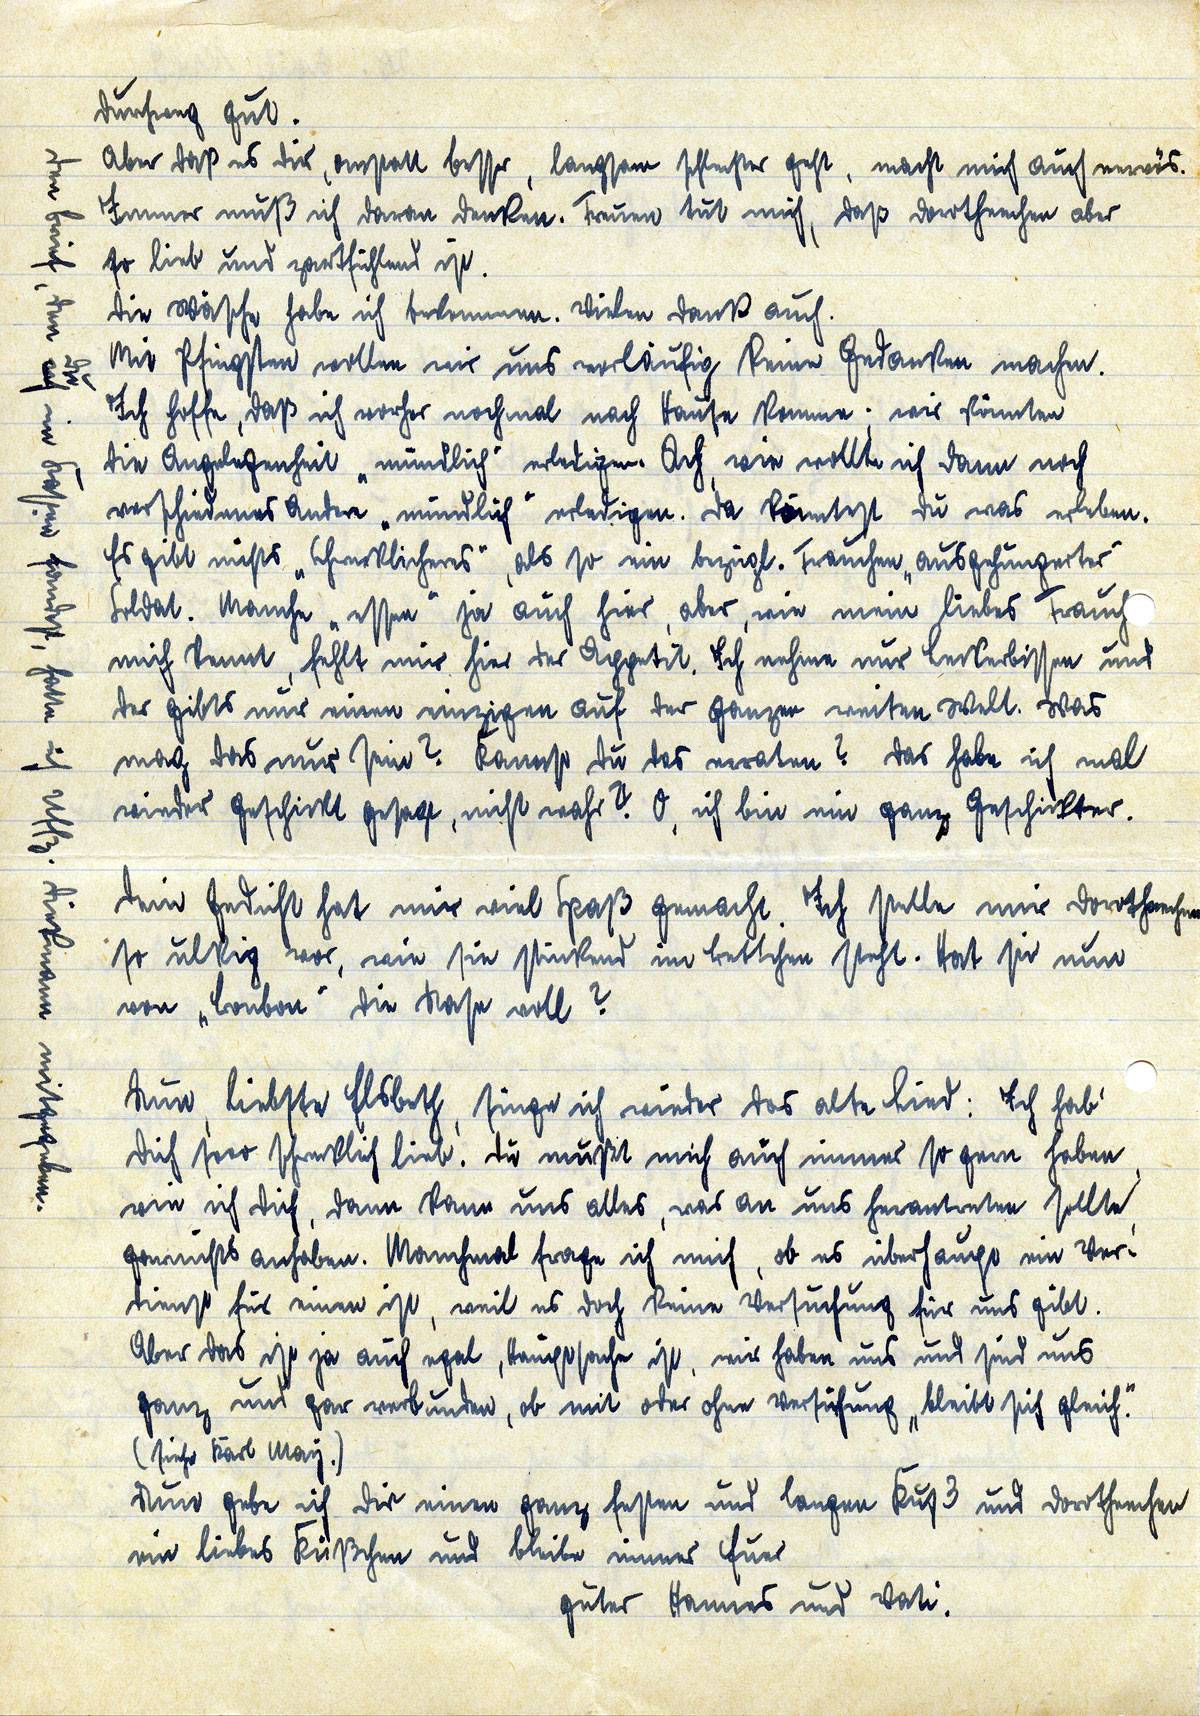 durchweg gut.
Aber daß es dir, anstatt besser, langsam schlechter geht, macht mich auch nervös.
Immer muß ich daran denken. Freuen tut mich, daß Dorotheechen aber
so lieb und zartfühlend ist.
Die Wäsche habe ich bekommen. Vielen Dank auch.
Mit Pfingsten wollen wir uns vorläufig keine Gedanken machen.
Ich hoffe, daß ich vorher nochmal nach Hause komme; wir könnten
die Angelegenheit „mündlich“ erledigen. Ach, wie wollte ich dann noch
verschiedenes Andere „mündlich“ erledigen. Da könntest du was erleben.
Es gibt nichts „Schrecklicheres“, als so ein bezügl. Frauchen „ausgehungerter“
Soldat. Manche „essen“ ja auch hier, aber, wie mein liebes Frauch
mich kennt, fehlt mir hier der Appetit. Ich nehme nur Leckerbissen und
der gibts nur einen einzigen auf der ganzen weiten Welt. Was
mag das nur sein? Kannst du das erraten? Das habe ich mal
wieder geschickt gesagt, nicht wahr? O, ich bin ein ganz Geschickter.
Dein Gedicht hat mir viel Spaß gemacht. Ich stelle mir Dorotheechen
so ulkig vor, wie sie stinkend im Bettchen steht. Hat sie nun
von „Bonbon“ die Nase voll?
Nun, liebste Elsbeth, singe ich wieder das alte Lied: Ich hab'
dich sooo schrecklich lieb. Du mußt mich auch immer so gern haben,
wie ich dich, dann kann uns alles, was an uns herantreten sollte,
garnichts anhaben. Manchmal frage ich mich, ob es überhaupt ein Ver-
dienst für einen ist, weil es doch keine Versuchung für uns gibt.
Aber das ist ja auch egal, Hauptsache ist, wir haben uns und sind uns
ganz und gar verbunden, ob mit oder ohne Versuchung „bleibt sich gleich“.
(siehe Karl May.)
Nun gebe ich dir einen ganz festen und langen Kuß 3 und Dorotheechen
ein liebes Küßchen und bleibe immer Euer
guter Hannes und Vati.
Den Brief, den du in Händen, hatte ich Uffz. Dietmann mitgegeben.